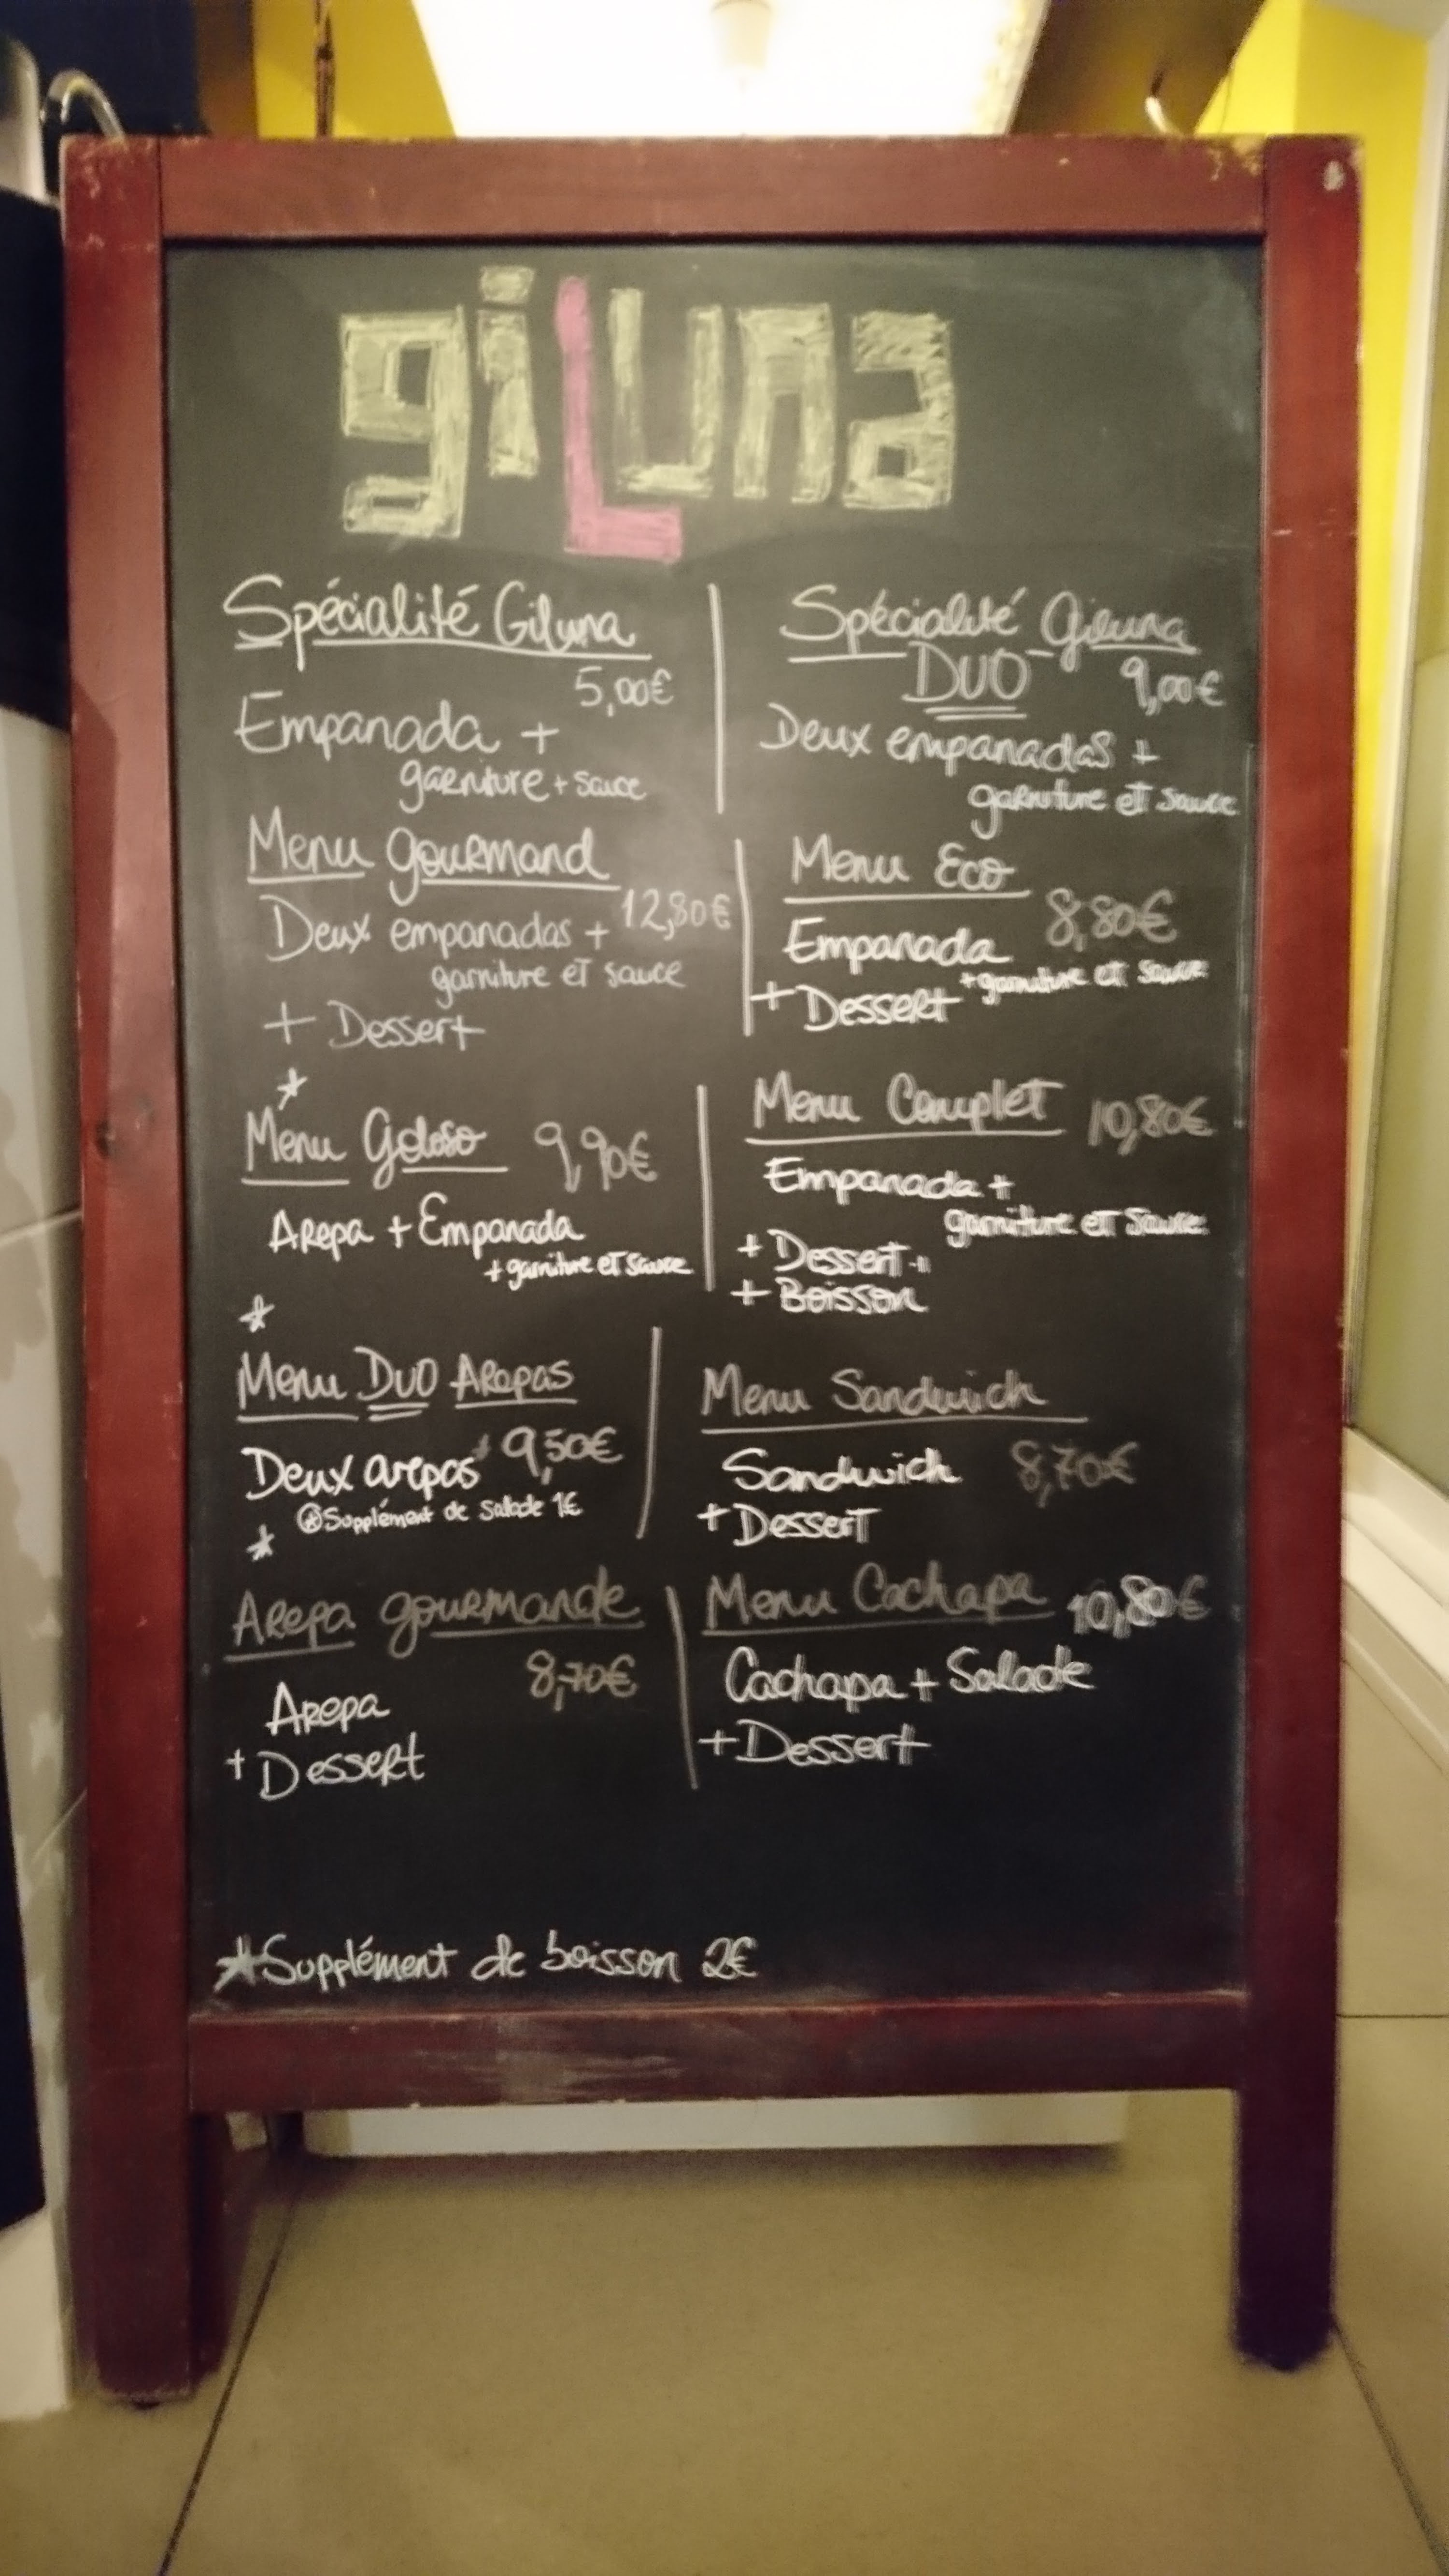 giLuna
Spécialité Giluna
5,00€
Empanada +
garniture + sauce
Spécialité Giluna
DUO 9,00€
Deux empanadas +
garniture et sauce
Menu gourmand
12,80€
Deux empanadas +
garniture et sauce
+ Dessert
Menu Eco
8,80€
Empanada
+ garniture et sauce
+ Dessert
*
Menu Goloso 9,90€
Arepa + Empanada
+ garniture et sauce
Menu Complet 10,80€
Empanada +
garniture et sauce
+ Dessert
+ Boisson
*
Menu DUO Arepas
9,50€
Deux arepas
* Supplément de salade 1€
Menu Sandwich
Sandwich 8,70€
+ Dessert
*
Arepa gourmande
8,70€
Arepa
+ Dessert
Menu Cachapa 10,80€
Cachapa + Salade
+ Dessert
* Supplément de boisson 2€